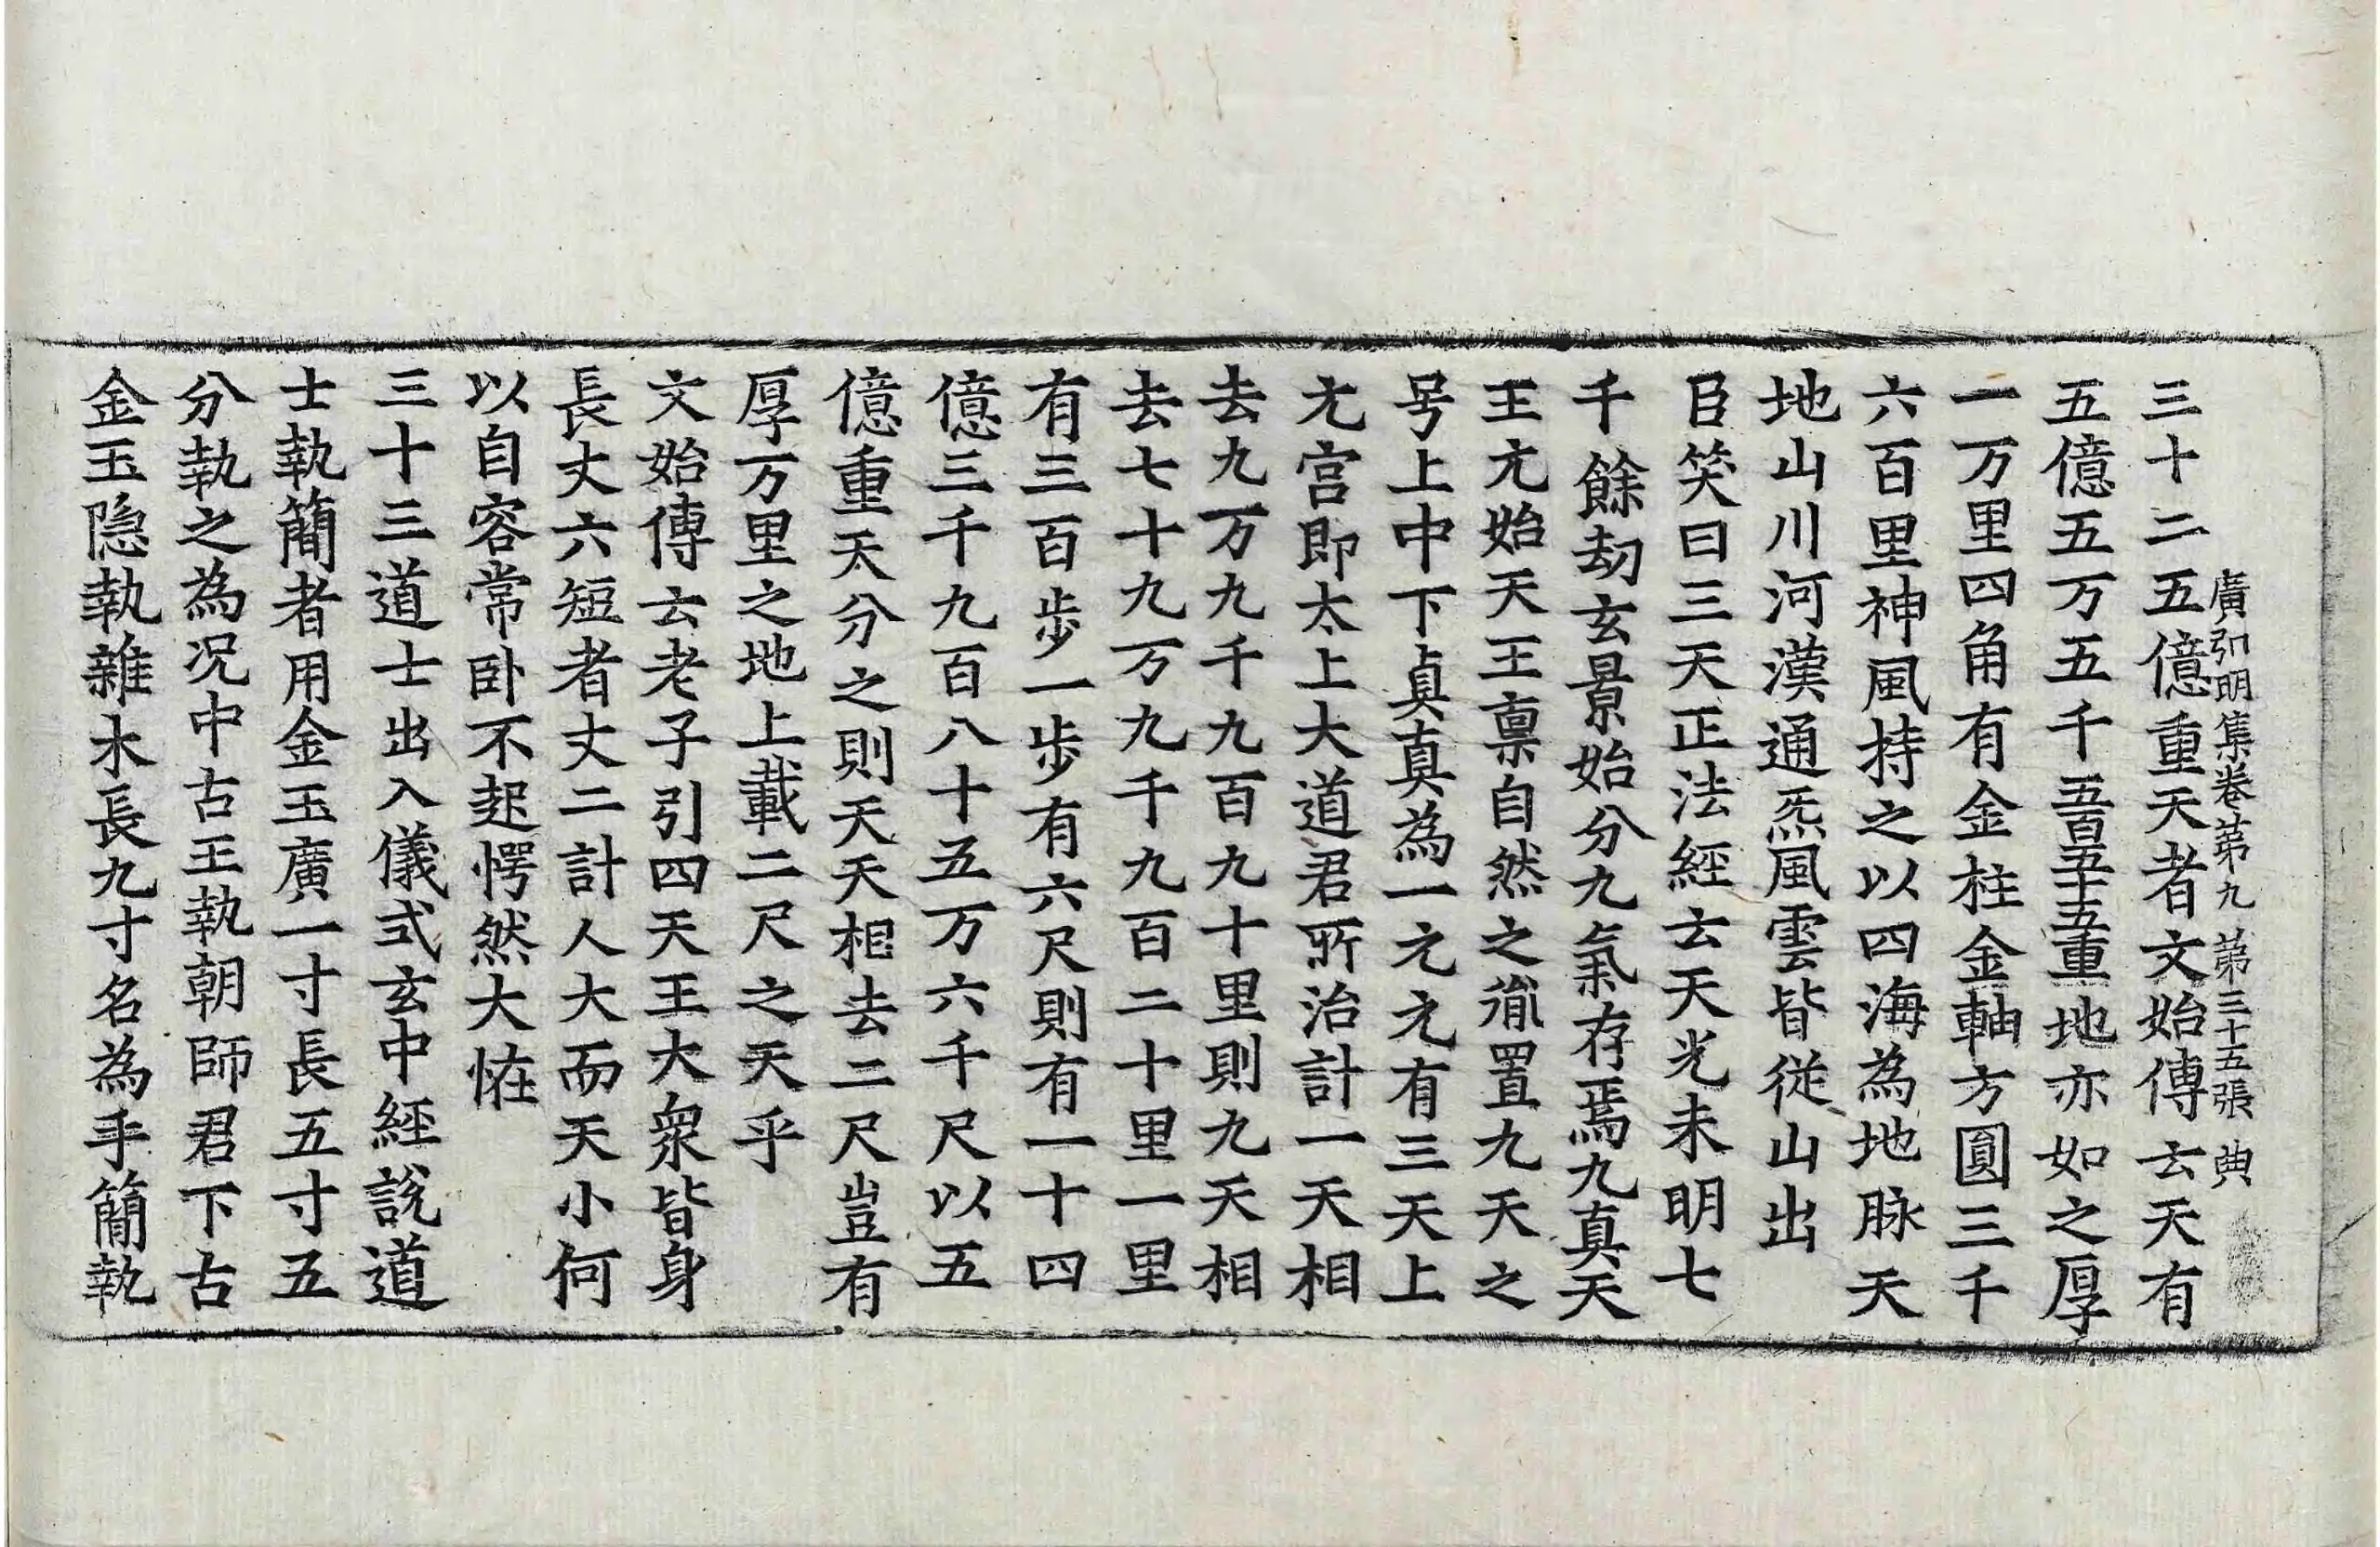 廣弘明集卷第九 第三十五張 典
三十二五億重天者文始傳云天有
五億五万五千五百五十五重地亦如之厚
一万里四角有金柱金軸方圓三千
六百里神風持之以四海為地脉天
地山川河漢通炁風雲皆從山出
臣笑曰三天正法經云天光未明七
千餘劫玄景始分九氣存焉九真天
王元始天王稟自然之胤置九天之
号上中下真真為一元元有三天上
元宮即太上大道君所治計一天相
去九万九千九百九十里則九天相
去七十九万九千九百二十里一里
有三百步一步有六尺則有一十四
億三千九百八十五万六千尺以五
億重天分之則天天相去二尺豈有
厚万里之地上載二尺之天乎
文始傳云老子引四天王大衆皆身
長丈六短者丈二計人大而天小何
以自容常卧不起愕然大恠
三十三道士出入儀式玄中經說道
士執簡者用金玉廣一寸長五寸五
分執之為况中古王執朝師君下古
金玉隱執雜木長九寸名為手簡執